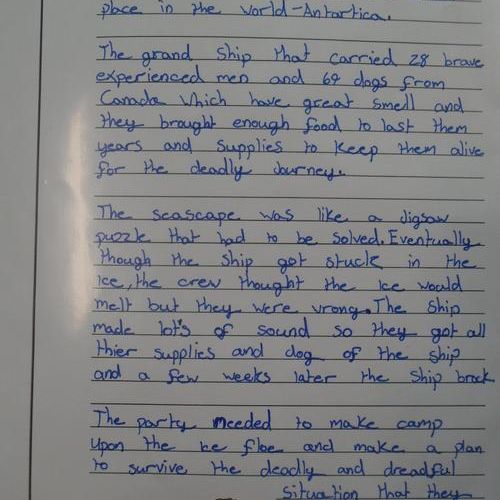 place in the world-Antartica.
The grand ship that carried 28 brave
experienced men and 69 dogs from
Canada which have great smell and
they brought enough food to last them
years and supplies to keep them alive
for the deadly Journey.
The seascape was like a Jigsaw
puzzle that had to be solved. Eventually
though the ship got stuck in the
ice, the crew thought the ice would
melt but they were vrong. The ship
made lot's of sound so they got all
thier supplies and dog of the ship
and a few weeks later the ship brock
The party needed to make camp
upon the ice floe and make a plan
to survive the deadly and dreadful
situation that they